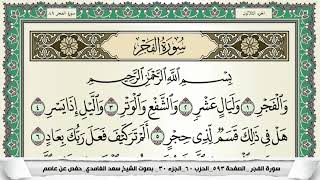 الجزء الثلاثون
سورة الفجر ٨٩
سُورَةُ الْفَجْرِ
بِسْمِ اللَّهِ الرَّحْمَٰنِ الرَّحِيمِ
وَالْفَجْرِ ١ وَلَيَالٍ عَشْرٍ ٢ وَالشَّفْعِ وَالْوَتْرِ ٣ وَاللَّيْلِ إِذَا يَسْرِ ٤
هَلْ فِي ذَٰلِكَ قَسَمٌ لِّذِي حِجْرٍ ٥ أَلَمْ تَرَ كَيْفَ فَعَلَ رَبُّكَ بِعَادٍ ٦
سورة الفجر . الصفحة ٥٩٣ . الحزب ٦٠ . الجزء ٣٠ . بصوت الشيخ سعد الغامدي . حفص عن عاصم